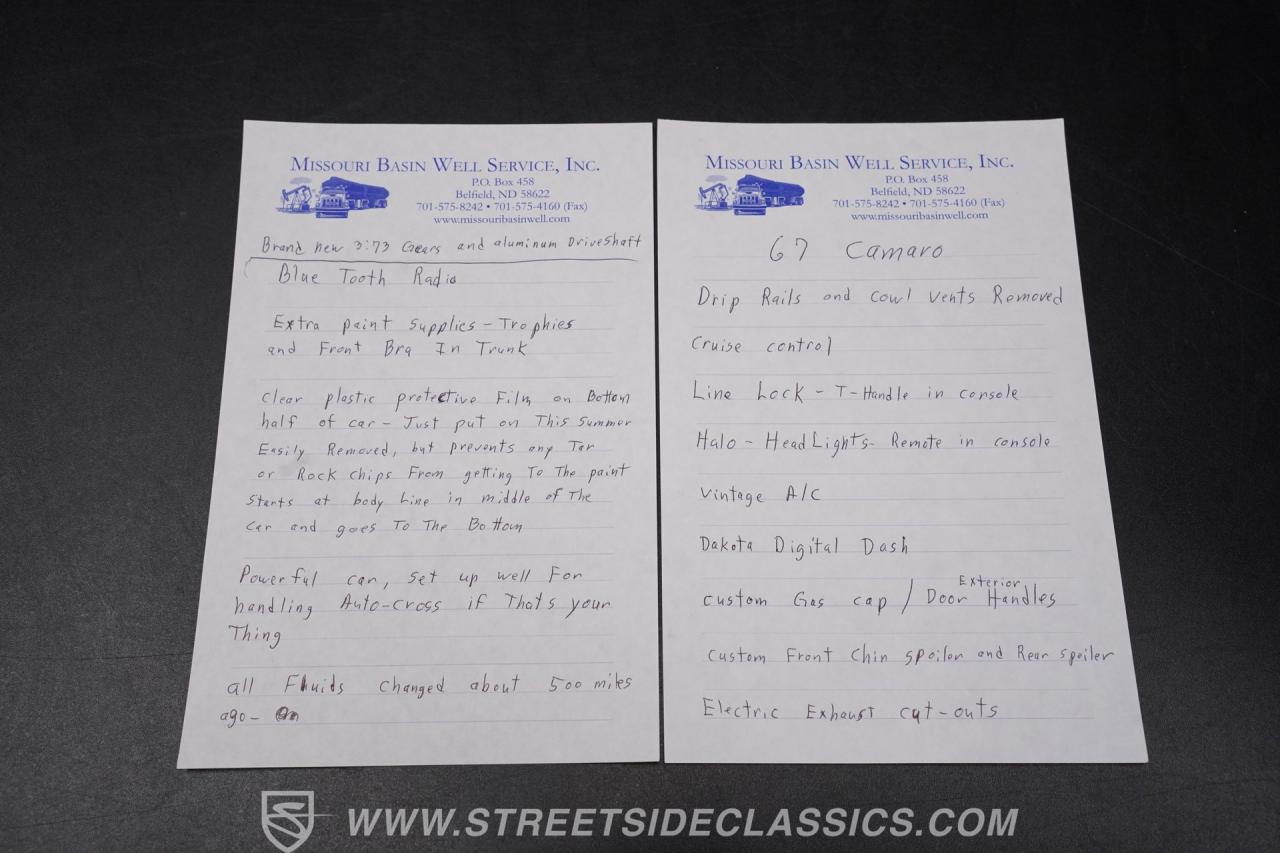 MISSOURI BASIN WELL SERVICE, INC.
P.O. Box 458
Belfield, ND 58622
701-575-8242 • 701-575-4160 (Fax)
www.missouribasinwell.com
Brand new 3:73 Gears and aluminum Driveshaft
Blue Tooth Radio
Extra paint supplies - Trophies
and Front Bra In Trunk
Clear plastic protective Film on Bottom
half of car - Just put on This summer
Easily Removed, but prevents any Tar
or Rock chips From getting To The paint
starts at body Line in middle of The
car and goes To The Bottom
Powerful car, set up well For
handling Auto-cross if That's your
Thing
all Fluids changed about 500 miles
ago-
MISSOURI BASIN WELL SERVICE, INC.
P.O. Box 458
Belfield, ND 58622
701-575-8242 • 701-575-4160 (Fax)
www.missouribasinwell.com
67 Camaro
Drip Rails and cowl vents Removed
Cruise control
Line Lock - T-Handle in console
Halo - HeadLights - Remote in console
Vintage A/C
Dakota Digital Dash
custom Gas cap / Exterior Door Handles
custom Front Chin spoiler and Rear spoiler
Electric Exhaust cut-outs
WWW.STREETSIDECLASSICS.COM